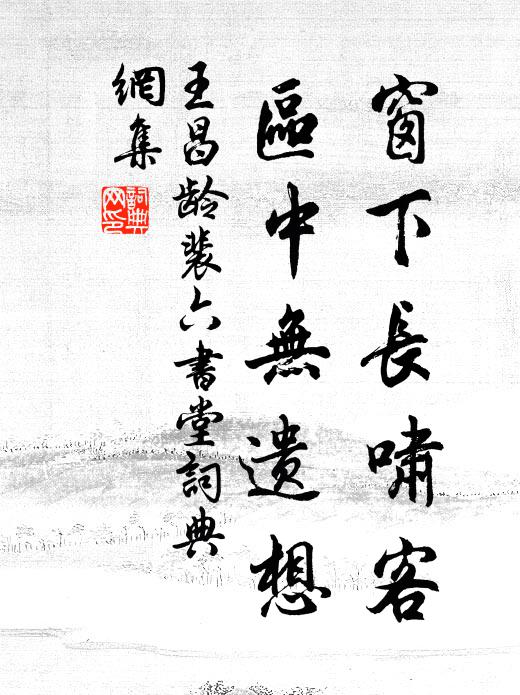 窗下長嘯客
區中無遺想
王昌齡裴六書堂詞典
網集
詞典
网印